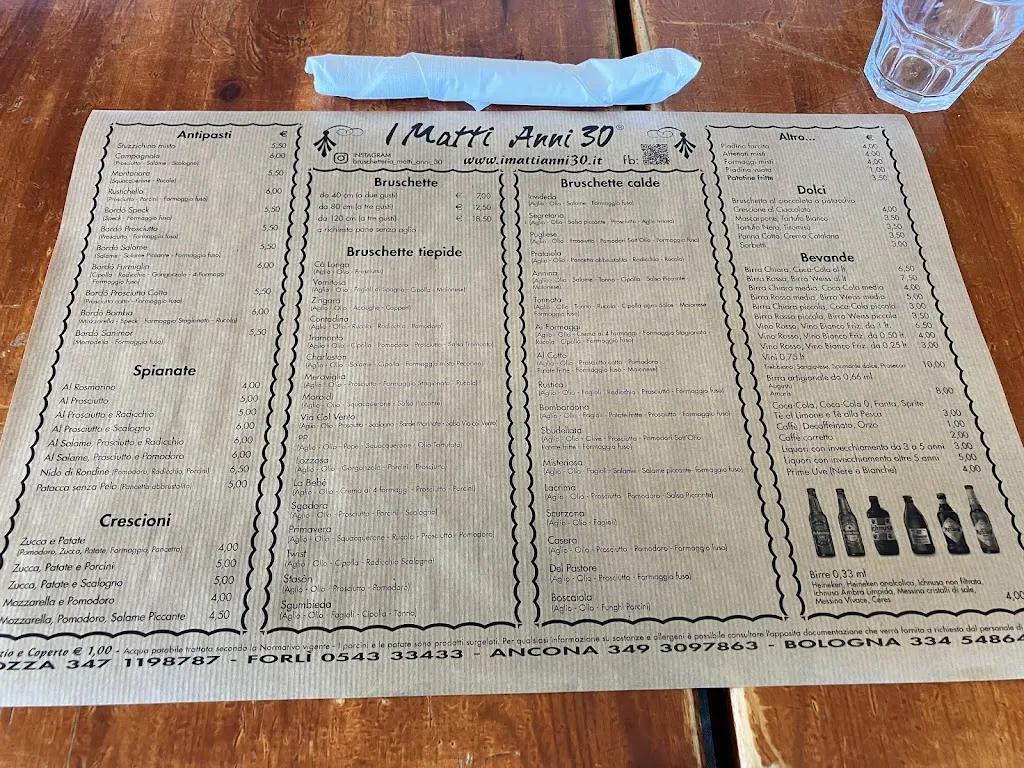 I Matti Anni 30®
INSTAGRAM
bruschetteria_matti_anni_30
www.imattianni30.it
fb:
Antipasti €
Stuzzichino misto 5,50
Campagnola 6,00
(Prosciutto - Salame - Scalogno)
Montanara 5,50
(Squacquerone - Rucola)
Rustichello 6,00
(Prosciutto - Porcini - Formaggio fuso)
Bordó Speck 5,50
(Speck - Formaggio fuso)
Bordó Prosciutto 5,50
(Prosciutto - Formaggio fuso)
Bordó Salame 5,50
(Salame - Salame Piccante - Formaggio fuso)
Bordó Furmiglin 6,00
(Cipolla - Radicchio - Gorgonzola - 4 Formaggi
Formaggio fuso)
Bordó Prosciutto Cotto 5,50
(Prosciutto cotto - Formaggio fuso)
Bordó Bomba 6,00
(Mozzarella - Speck - Formaggio Stagionato - Rucola)
Bordó Sanimor 5,50
(Mortadella - Formaggio fuso)
Spianate
Al Rosmarino 4,00
Al Prosciutto 5,00
Al Prosciutto e Radicchio 5,00
Al Prosciutto e Scalogno 6,00
Al Salame, Prosciutto e Radicchio 6,00
Al Salame, Prosciutto e Pomodoro 6,00
Nido di Rondine (Pomodoro, Radicchio, Porcini) 6,50
Patacca senza Pelo (Pancetta abbrustolita) 5,00
Crescioni
Zucca e Patate 4,00
(Pomodoro, Zucca, Patate, Formaggio, Pancetta)
Zucca, Patate e Porcini 5,00
Zucca, Patate e Scalogno 5,00
Mozzarella e Pomodoro 4,00
Mozzarella, Pomodoro, Salame Piccante 4,50
Bruschette
da 40 cm (a due gusti) € 7,00
da 80 cm (a tre gusti) € 12,50
da 120 cm (a tre gusti) € 18,50
a richiesta pane senza aglio
Bruschette tiepide
Cà Longa
(Aglio - Olio - Prosciutto)
Vomitosa
(Aglio - Olio - Fagioli di Spagna - Cipolla - Maionese)
Zingara
(Aglio - Olio - Acciughe - Capperi)
Contadina
(Aglio - Olio - Rucola - Radicchio - Pomodoro)
Tramonto
(Aglio - Olio - Cipolla - Pomodoro - Prosciutto - Salsa Tramonto)
Charleston
(Aglio - Olio - Salame - Cipolla - Formaggio misto Pecorino)
Meraviglia
(Aglio - Olio - Prosciutto - Formaggio Stagionato - Rucola)
Moroidi
(Aglio - Olio - Squacquerone - Salsa Piccante)
Via Col Vento
(Aglio - Olio - Prosciutto - Scalogno - Sarde Marinate - Salsa Via col Vento)
PP
(Aglio - Olio - Pepe - Squacquerone - Olio Tartufato)
Lozzosa
(Aglio - Olio - Gorgonzola - Porcini - Prosciutto)
La Bebè
(Aglio - Olio - Crema ai 4 formaggi - Prosciutto - Porcini)
Sgadora
(Aglio - Olio - Prosciutto - Porcini - Scalogno)
Primavera
(Aglio - Olio - Squacquerone - Rucola - Prosciutto - Pomodoro)
Twist
(Aglio - Olio - Cipolla - Radicchio Scalogno)
Stasòn
(Aglio - Olio - Prosciutto - Pomodoro)
Sgumbieda
(Aglio - Olio - Fagioli - Cipolla - Tonno)
Bruschette calde
Invideda
(Aglio - Olio - Salame - Formaggio fuso)
Segretaria
(Aglio - Olio - Salsa piccante - Prosciutto - Aglio Intero)
Pugliese
(Aglio - Olio - Prosciutto - Pomodori Sott'Olio - Formaggio fuso)
Prataiola
(Aglio - Olio - Pancetta abbrustolita - Radicchio - Rucola)
Annina
(Aglio - Olio - Salame - Tonno - Cipolla - Salsa Piccante
Maionese)
Tonnata
(Aglio - Olio - Tonno - Rucola - Cipolla agro dolce - Maionese
Formaggio fuso)
Ai Formaggi
(Aglio - Olio - Crema ai 4 formaggi - Formaggio Stagionato
Rucola - Cipolla - Formaggio fuso)
Al Cotto
(Aglio - Olio - Prosciutto cotto - Pomodoro
Patate fritte - Formaggio fuso - Maionese)
Rustica
(Aglio - Olio - Fagioli - Radicchio - Prosciutto - Formaggio fuso)
Bombardona
(Aglio - Olio - Fagioli - Patate fritte - Prosciutto - Formaggio fuso)
Sbudellata
(Aglio - Olio - Olive - Prosciutto - Pomodori Sott'Olio
Patate fritte - Formaggio fuso)
Misteriosa
(Aglio - Olio - Fagioli - Salame - Salame piccante - Formaggio fuso)
Lacrima
(Aglio - Olio - Prosciutto - Pomodoro - Salsa Piccante)
Scurzona
(Aglio - Olio - Fagioli)
Casera
(Aglio - Olio - Prosciutto - Pomodoro - Formaggio fuso)
Del Pastore
(Aglio - Olio - Prosciutto - Formaggio fuso)
Boscaiola
(Aglio - Olio - Funghi Porcini)
Altro... €
Piadina farcita 4,00
Affettati misti 4,00
Formaggi misti 4,00
Piadina vuota 1,00
Patatine fritte 3,50
Dolci
Bruschetta al cioccolato o pistacchio
Crescione al Cioccolato 4,00
Mascarpone, Tartufo Bianco 3,50
Tartufo Nero, Tiramisù 3,50
Panna Cotta, Crema Catalana 3,50
Sorbetti 3,00
Bevande
Birra Chiara, Coca-Cola al lt 6,50
Birra Rossa, Birra Weiss al lt 7,50
Birra Chiara media, Coca-Cola media 4,00
Birra Rossa media, Birra Weiss media 5,00
Birra Chiara piccola, Coca-Cola piccola 3,00
Birra Rossa piccola, Birra Weiss piccola 3,50
Vino Rosso, Vino Bianco Friz. da 1 lt. 6,50
Vino Rosso, Vino Bianco Friz. da 0,50 lt. 4,00
Vino Rosso, Vino Bianco Friz. da 0,25 lt. 3,00
Vini 0,75 lt
Trebbiano, Sangiovese, Spumante dolce, Prosecco 10,00
Birra artigianale da 0,66 ml
Augustu
Amaris 8,00
Coca-Cola, Coca-Cola 0, Fanta, Sprite
Tè al Limone e Tè alla Pesca 3,00
Caffè, Decaffeinato, Orzo 1,00
Caffè corretto 2,00
Liquori con invecchiamento da 3 a 5 anni 3,00
Liquori con invecchiamento oltre 5 anni 5,00
Prime Uve (Nere e Bianche) 4,00
Ichnusa
Birre 0,33 ml
Heineken, Heineken analcolica, Ichnusa non filtrata,
Ichnusa Ambra Limpida, Messina cristalli di sale,
Messina Vivace, Ceres 4,00
zio e Coperto € 1,00 - Acqua potabile trattata secondo la Normativa vigente - I porcini e le patate sono prodotti surgelati. Per qualsiasi informazione su sostanze e allergeni è possibile consultare l'apposita documentazione che verrà fornita a richiesta dal personale di
OZZA 347 1198787 - FORLÌ 0543 33433 - ANCONA 349 3097863 - BOLOGNA 334 54864